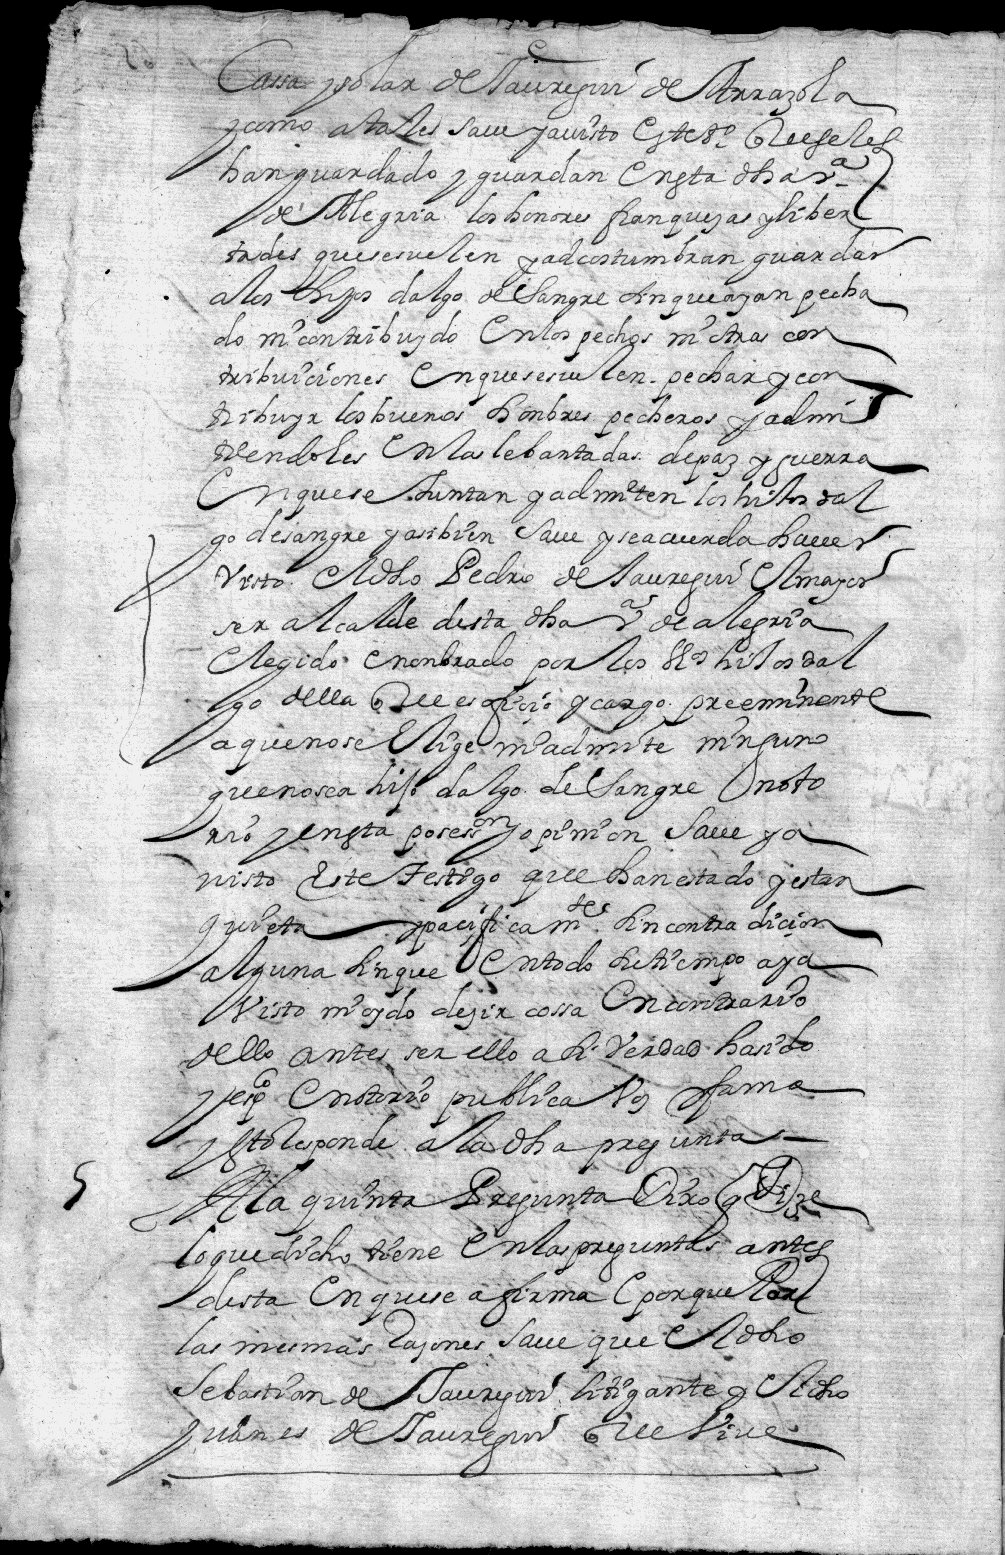 Cassa y solar de Jauregui de Arrazola
y como a tales save y a visto este tº que se les
han guardado y guardan en esta dha vª
de Alegria los honores franquezas y liber
tades que se suelen y adcostumbran guardar
a los hijos dalgo de sangre sin que ayan pecha
do ni contribuydo en los pechos ni otras con
tribuiciones en que se suelen pechar y con
tribuyr los buenos honbres pecheros y admi
tiendoles en las lebantadas de paz y guerra
en que se Juntan y admiten los hijos dal
go de sangre y asi bien save y se acuerda haver
visto el dho Pedro de Jauregui el mayor
ser alcalde desta dha vª de alegria
elegido e nonbrado por los hijos dal
go della que es ofiçio y cargo preeminente
a que no se elige ni admite ninguno
que no sea hijo dalgo de sangre noto
rio y en esta posesson y opinion save y a
visto este testigo que han estado y estan
quieta y paçificamte sin contradiçion
alguna sin que en todo su tiempo aya
visto ni oydo dezir cossa en contrario
dello antes ser ello asi verdad ha sido
y es pco e notorio publica voz y fama
y esto Responde a la dha pregunta
5 A la quinta Pregunta Dixo q Dize
lo que dicho tiene en las preguntas antes
desta en que se afirma e porque Por
las mesmas Razones save que el dho
Sebastian de Jauregui litigante y el dho
Juanes de Jauregui que vive